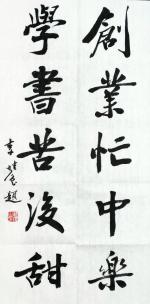 創業忙中樂
學書苦後甜